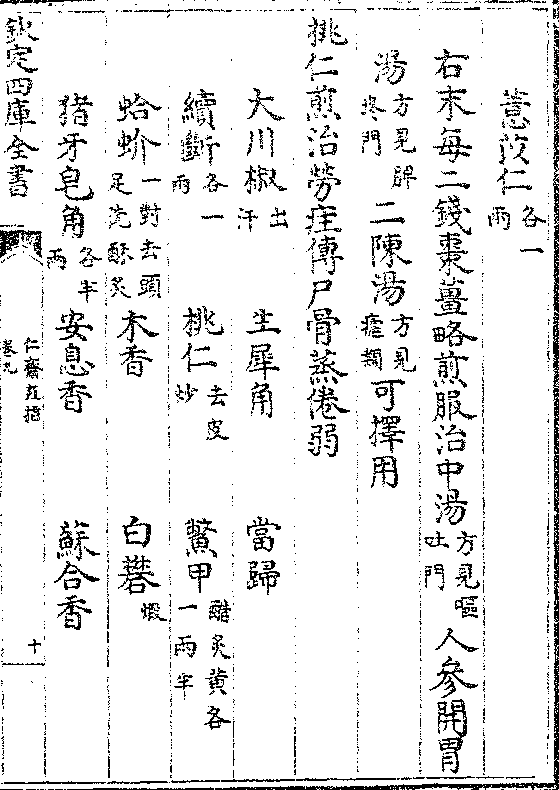 薏苡仁各一兩
右末每二錢棗薑略煎服治中湯方見嘔吐門人參開胃
湯方見脾疼門二陳湯方見瘧類可擇用
桃仁煎治勞疰傳尸骨蒸倦弱
大川椒出汗 生犀角 當歸
續斷各一兩 桃仁去皮炒 鱉甲醋炙黄各一兩半
蛤蚧一對去頭足蒸酥炙 木香 白礬煅
猪牙皂角各半兩 安息香 蘇合香
欽定四庫全書 仁齋直指 卷九 十